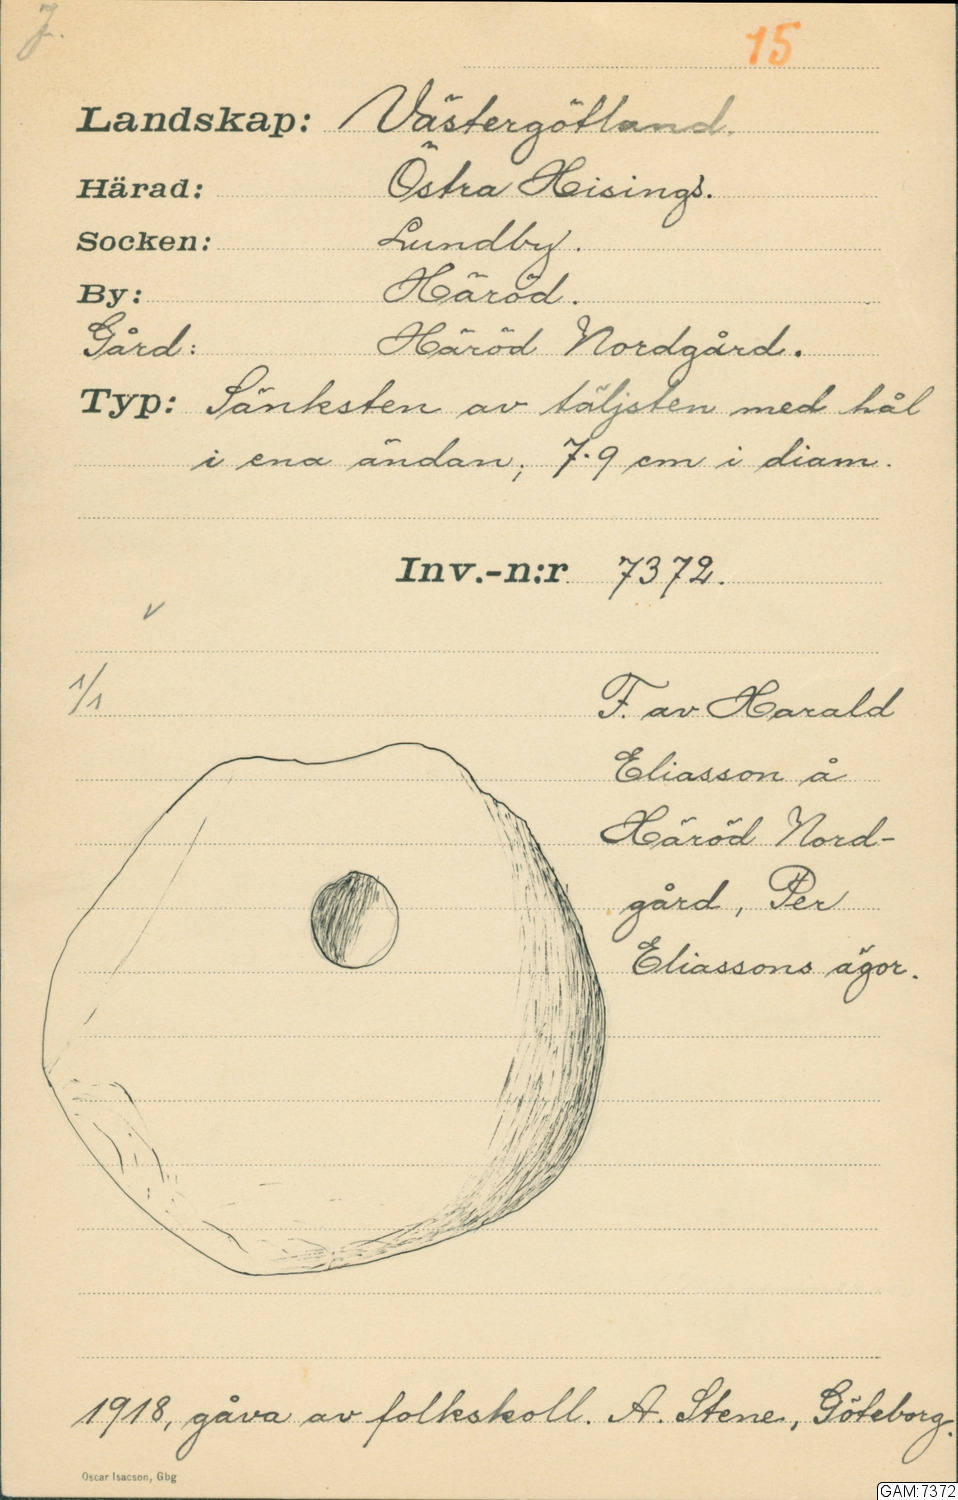 J.
15
Landskap: Västergötland.
Härad: Östra Hisings.
Socken: Lundby.
By: Häröd.
Gård: Häröd Nordgård.
Typ: Sänksten av täljsten med hål
i ena ändan; 7.9 cm i diam.
Inv.-n:r 7372.
1/1
F. av Harald
Eliasson å
Häröd Nord-
gård, Per
Eliassons ägor.
1918, gåva av folkskoll. A. Stene, Göteborg.
Oscar Isacson, Gbg
GAM:7372